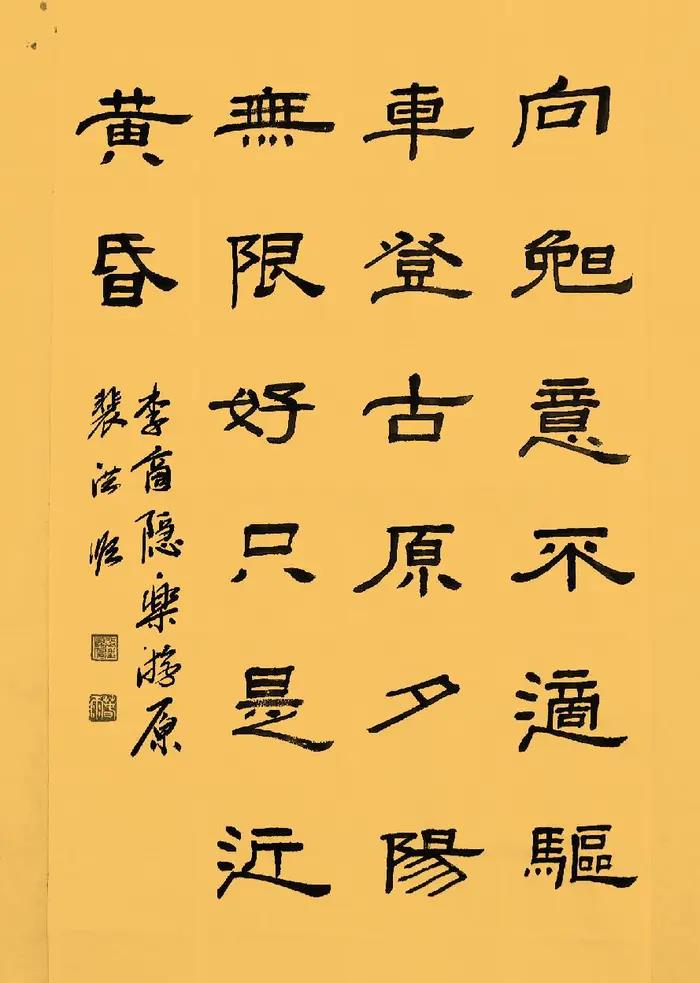 向晚意不適驅
車登古原夕陽
無限好只是近
黄昏
李商隐樂游原
裴洪